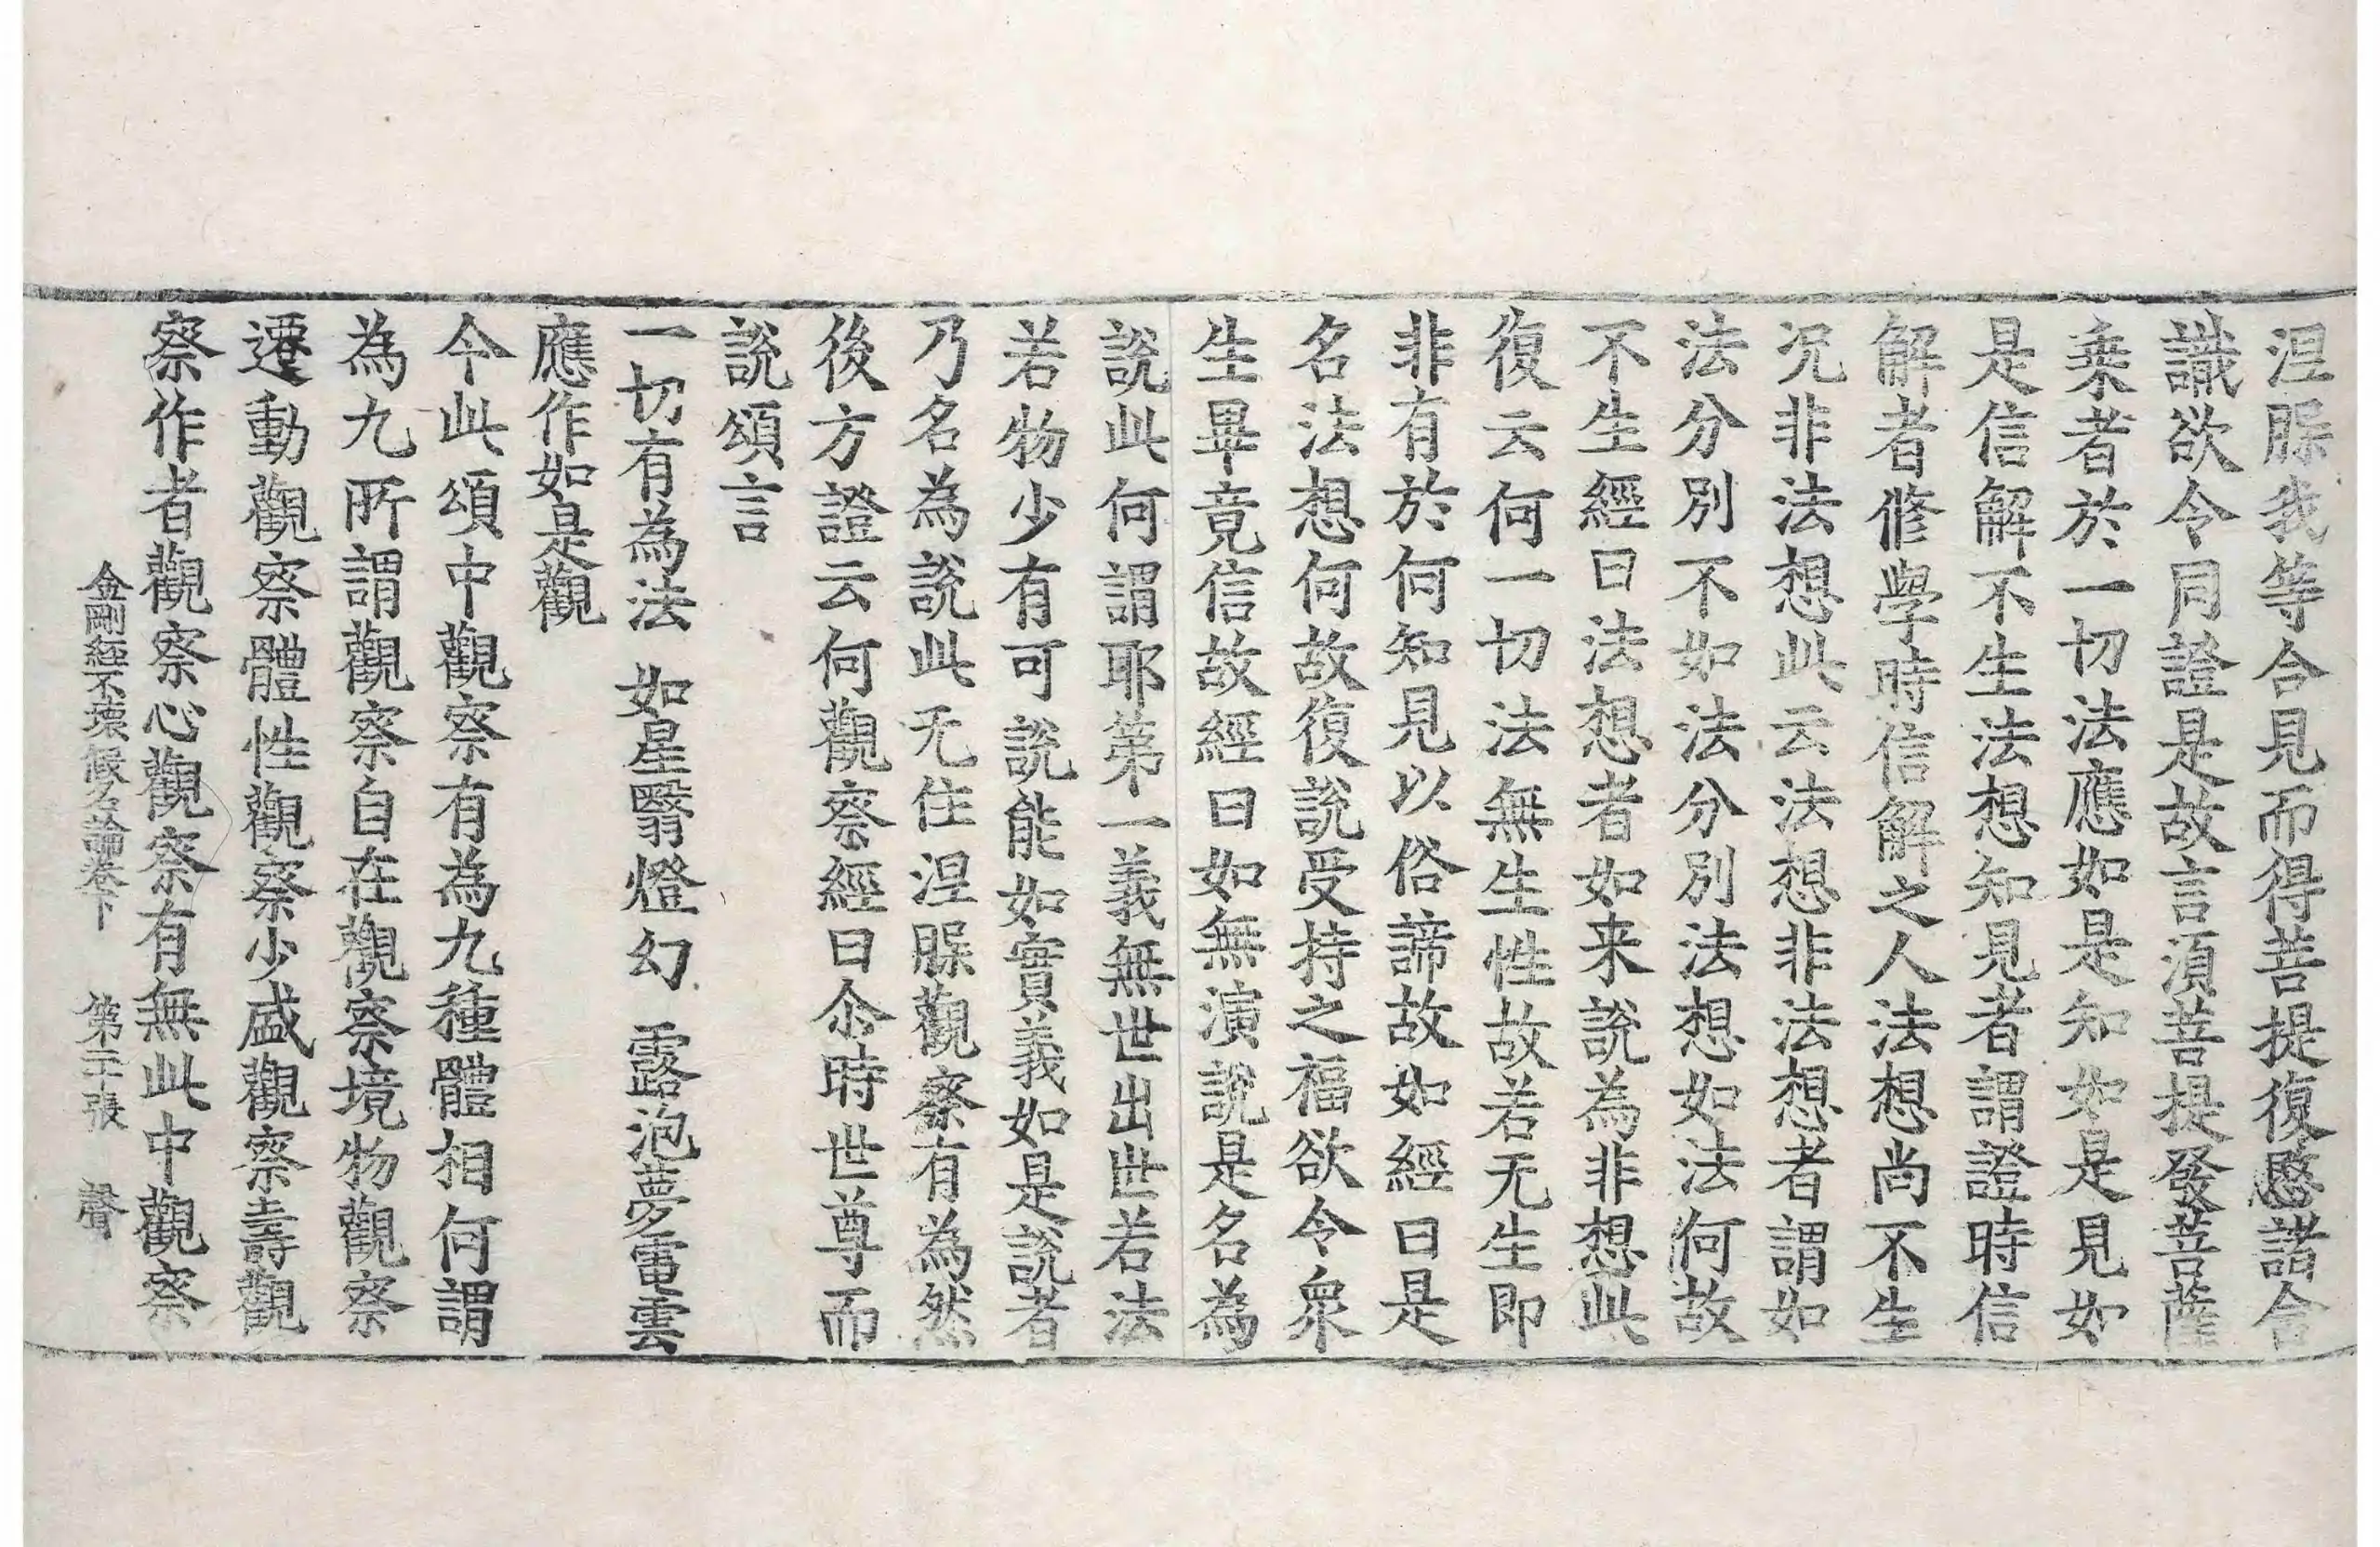 涅槃我等合見而得菩提復愍諸含
識欲令同證是故言湏菩提發菩薩
乗者於一切法應如是知如是見如
是信解不生法想知見者謂證時信
解者修學時信解之人法想尚不生
況非法想此云法想非法想者謂如
法分別不如法分別法想如法何故
不生經曰法想者如来說為非想此
復云何一切法無生性故若无生即
非有於何知見以俗諦故如經曰是
名法想何故復說受持之福欲令衆
生畢竟信故經曰如無演說是名為
說此何謂耶第一義無世出世若法
若物少有可說能如實義如是說者
乃名為說此无住涅槃觀察有為然
後方證云何觀察經曰尒時世尊而
說頌言
一切有為法　如星翳燈幻　露泡夢電雲
應作如是觀
今此頌中觀察有為九種體相何謂
為九所謂觀察自在觀察境物觀察
遷動觀察體性觀察少盛觀察壽觀
察作者觀察心觀察有無此中觀察
金剛經不壞假名論卷下　第二張　聲